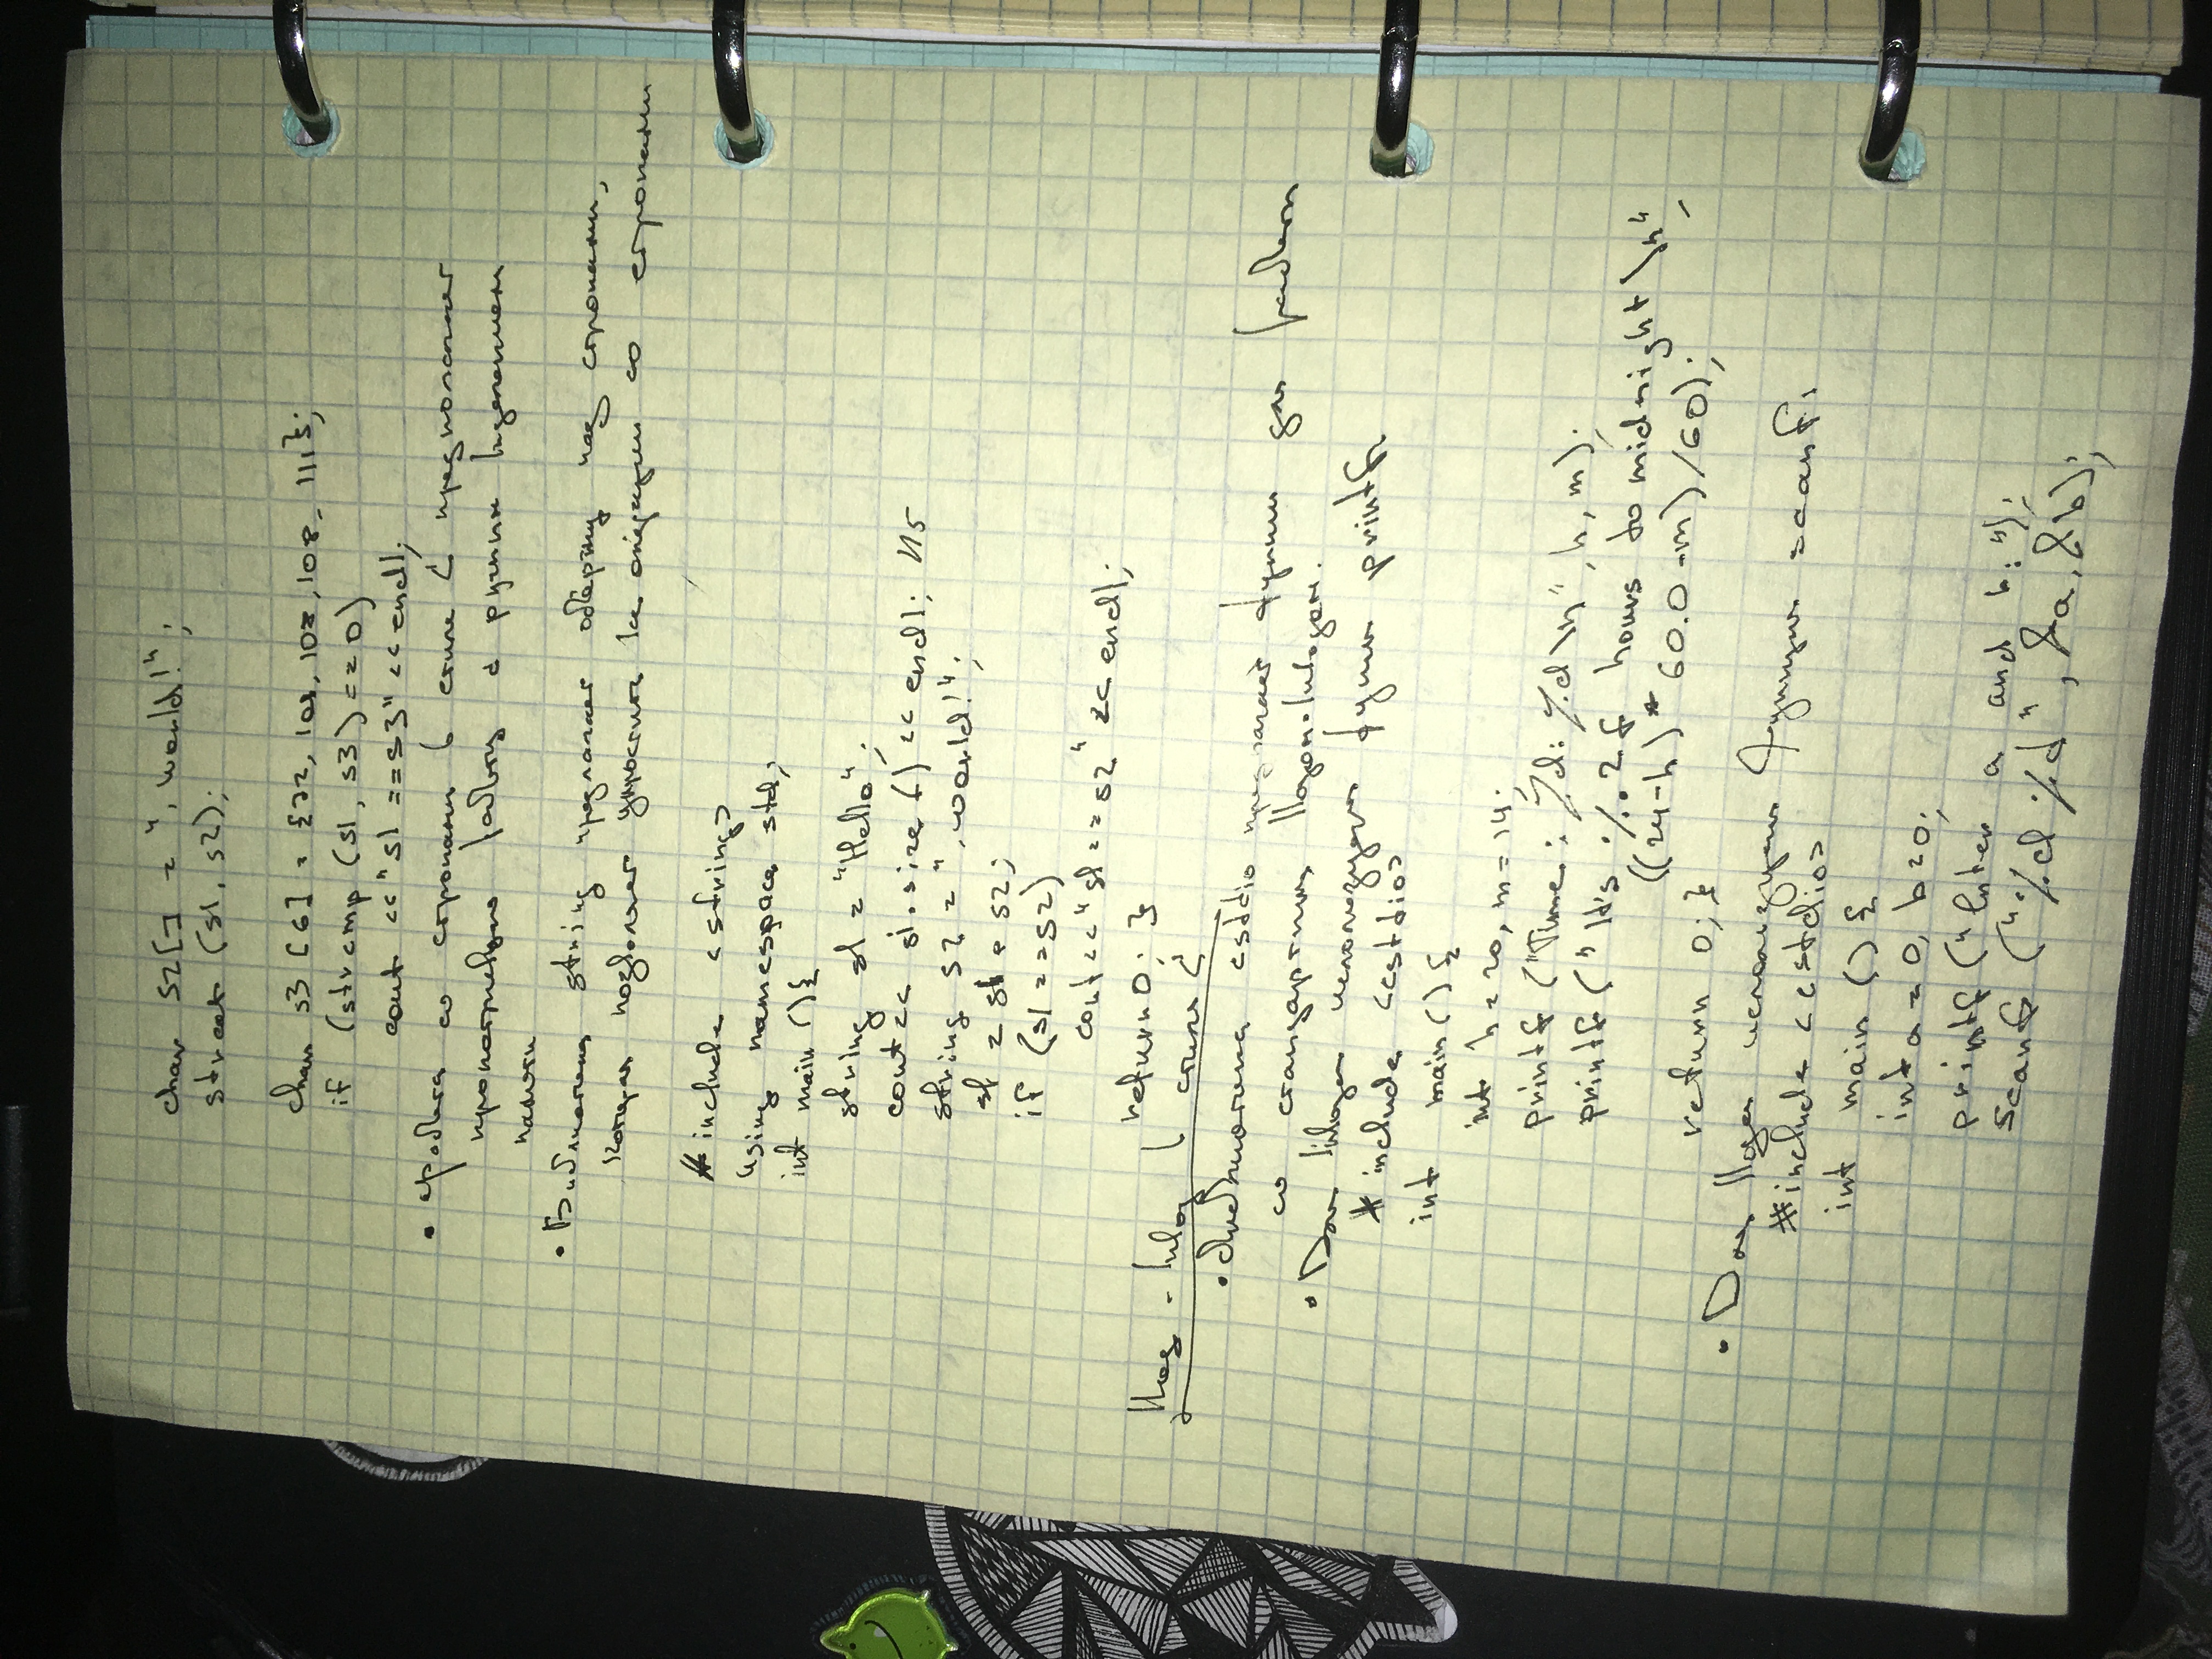 char s2[] = ", world!";
strcat (s1, s2);
char s3 [6] = {72, 101, 108, 108, 111};
if (strcmp (s1, s3) == 0)
cout << "s1 == s3" << endl;
• работа со строками в стиле C предполагает
кропотливую работу с ручным выделением
памяти
• Библиотека string предлагает обёртку над строками,
которая позволяет упростить все операции со строками
# include <string>
using namespace std;
int main () {
string s1 = "Hello";
cout << s1.size () << endl; //5
string s2 = ", world!";
s1 = s1 + s2;
if (s1 == s2)
cout << "s1 == s2" << endl;
return 0; }
Ввод - вывод в стиле C
• библиотека cstdio предлагает функции для работы
со стандартным вводом-выводом.
• Для вывода используется функция printf
# include <cstdio>
int main () {
int h = 20, m = 14;
printf ("Time: %d: %d \n", h, m);
printf ("It's %.2f hours to midnight \n",
((24-h) * 60.0 -m) /60);
return 0; }
• Для ввода используется функция scanf.
#include <cstdio>
int main () {
int a = 0, b = 0;
printf ("Enter a and b: ");
scanf ("%d %d", &a, &b);